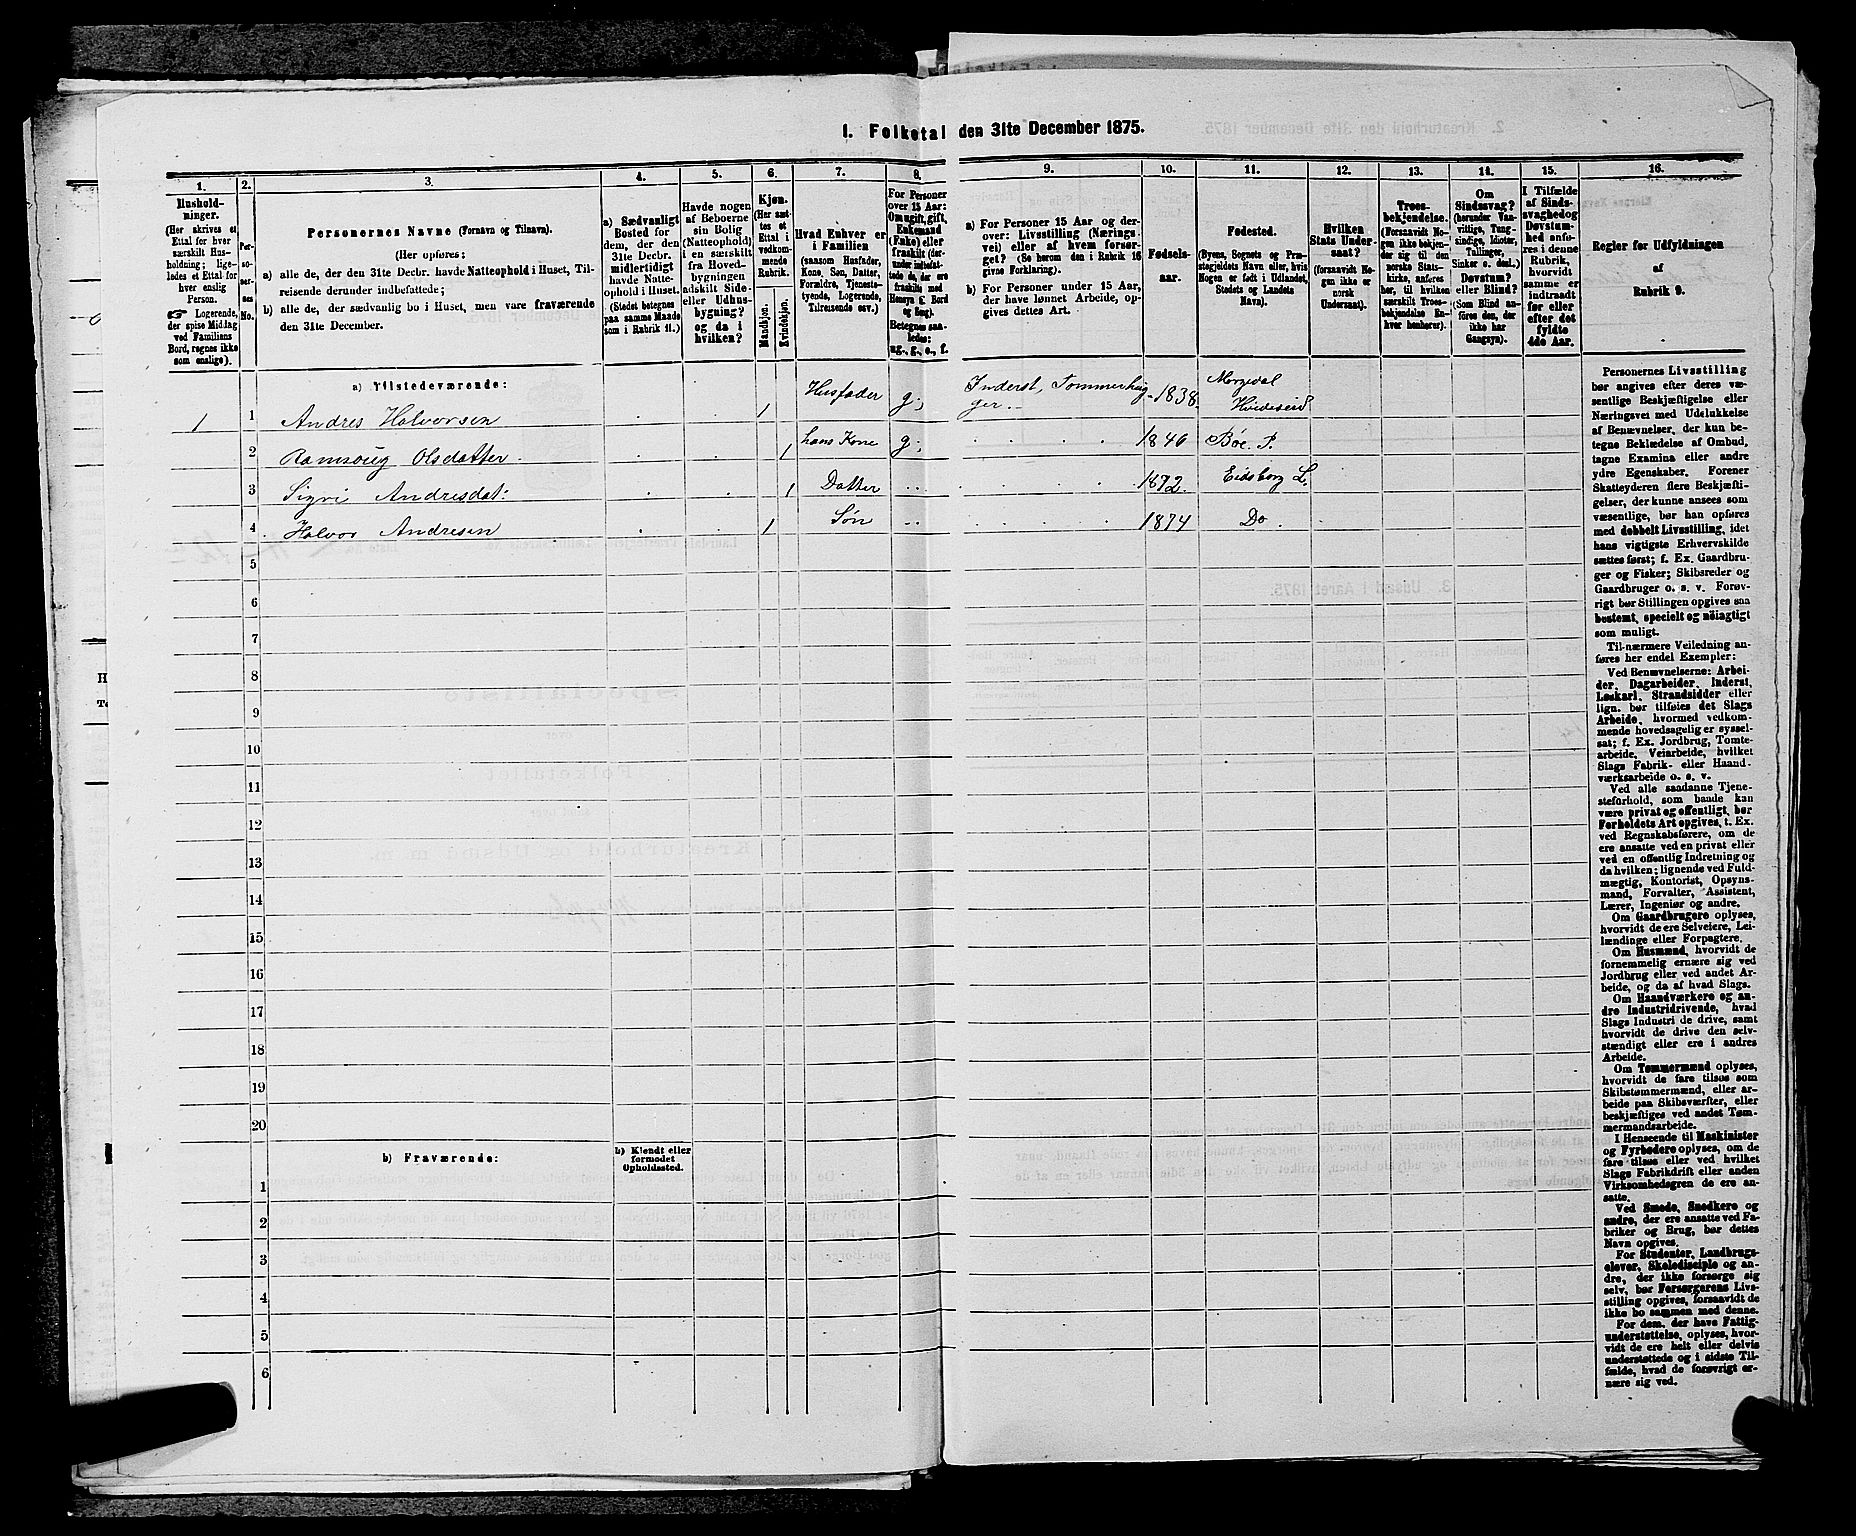 1. Folketal den 31te December 1875.
1.
2.
3.
4.
5.
6.
7.
8.
9.
10.
11.
12.
13.
14.
15.
16.
Hushold-
ninger.
(Her skrives et
Ettal for hver
særskilt Hus-
holdning; lige-
ledes et Ettal for
hver enslig
Person.
☞ Logerende,
der spise Middag
ved Familiens
Bord, regnes ikke
som enslige).
Per-
so-
ner-
nes
No.
Personernes Navne (Fornavn og Tilnavn).
(Her opføres:
a) alle de, der den 31te Decbr. havde Natteophold i Huset, Til-
reisende derunder indbefattede;
b) alle de, der sædvanlig bo i Huset, men vare fraværende
den 31te December.
a) Sædvanligt
Bosted for
dem, der den
31te Decbr.
midlertidigt
havde Natte-
ophold i Huset.
(Stedet betegnes
paa samme Maade
som i Rubrik 11.)
Havde nogen
af Beboerne
sin Bolig
(Natteophold)
i en særskilt
fra Hoved-
bygningen
adskilt Side-
eller Udhus-
bygning?
og da i
hvilken?
Kjøn.
(Her sæt-
tes et
Ettal i
vedkom-
mende
Rubrik.
Mandkjøn.
Kvindekjøn.
Hvad Enhver er
i Familien
(saasom Husfader,
Kone, Søn, Datter,
Forældre, Tjeneste-
tyende, Logerende,
Tilreisende osv.)
For Personer
over 15 Aar:
Om ugift, gift,
Enkemand
(Enke) eller
fraskilt (der-
under indbefat-
tede de, der ere
fraskilte med
Hensyn til Bord
og Seng).
Betegnes saa-
ledes:
ug., g., e., f.
a) For Personer 15 Aar og der-
over: Livsstilling (Nærings-
vei) eller af hvem forsør-
get? (Se herom den i Rubrik 16
givne Forklaring).
b) For Personer under 15 Aar,
der have lønnet Arbeide, op-
gives dettes Art.
Fødsels-
aar.
Fødested.
(Byens, Sognets og Præ-
stegjeldets Navn eller, hvis
Nogen er født i Udlandet,
Stedets og Landets
Navn).
Hvilken
Stats Under-
saat?
(forsaavidt No-
gen ikke er
norsk
Undersaat).
Troes-
bekjendelse.
(Forsaavidt No-
gen ikke bekjen-
der sig til den
norske Stats-
kirke, anføres
her, til hvilken
særskilt Troes-
bekjendelse En-
hver henhører).
Om
Sindssvag?
(herunder Van-
vittige, Tung-
sindige, Idioter,
Tullinger,
Sinker o. desl.)
Døvstum?
eller Blind?
(Som Blind an-
føres den, der
ikke har
Gangsyn).
I Tilfælde
af Sinds-
svaghed og
Døvstum-
hed anfø-
res i denne
Rubrik,
hvorvidt
samme er
indtraadt
før eller
efter det
fyldte
4de Aar.
Regler for Udfyldningen
af
Rubrik 9.
a) Tilstedeværende:
1 1 Andres Halvorsen 1 Husfader g. Inderst, Tommerhug
ger. 1838. Morgedal
Hvideseid
2 Ramsoug Olsdatter 1 hans Kone g. 1840 Bøe. P.
3 Sigri Andresdat: 1 Datter 1872. Eidsborg L.
4 Halvor Andresen 1 Søn 1874 Do.
5
6
7
8
9
10
11
12
13
14
15
16
17
18
19
20
b) Fraværende:
b) Kjendt eller
formodet
Opholdssted.
1
2
3
4
5
6
Personernes Livsstilling
bør angives efter deres væ-
sentlige Beskjæftigelse eller
Næringsvei med Udelukkelse
af Benævnelser, der kun be-
tegne Beklædelse af Ombud,
tagne Examina eller andre
ydre Egenskaber. Forener
Skatteyderen flere Beskjæfti-
gelser, der kunne ansees som
væsentlige, bør han opføres
med dobbelt Livsstilling, idet
hans vigtigste Erhvervskilde
sættes først; f. Ex. Gaardbru-
ger og Fisker; Skibsreder og
Gaardbruger o. s. v. Forøv-
rigt bør Stillingen opgives saa
bestemt, specielt og nøiagtigt
som muligt.
Til nærmere Veiledning an-
føres her endel Exempler:
Ved Benævnelserne: Arbei-
der, Dagarbeider, Inderst,
Løskarl, Strandsidder eller
lign. bør tilføies det Slags
Arbeide, hvormed vedkom-
mende hovedsagelig er syssel-
sat; f. Ex. Jordbrug, Tomte-
arbeide, Veiarbeide, hvilket
Slags Fabrik- eller Haand-
værksarbeide o. s. v.
Ved alle saadanne Tjene-
steforhold, som baade kan
være privat og offentligt, bør
Forholdets Art opgives, t. Ex.
ved Regnskabsførere, om de
ere ansatte ved en privat eller
ved en offentlig Indretning og
da hvilken; lignende ved Fuld-
mægtig, Kontorist, Opsyns-
mand, Forvalter, Assistent,
Lærer, Ingeniør og andre.
Om Gaardbrugere oplyses,
hvorvidt de ere Selveiere, Lei-
lændinge eller Forpagtere.
Om Husmænd, hvorvidt de
fornemmelig ernære sig ved
Jordbrug eller ved andet Ar-
beide, og da af hvad Slags.
Om Haandværkere og an-
dre Industridrivende, hvad
Slags Industri de drive, samt
hvorvidt de drive den selv-
stændigt eller ere i andres
Arbeide.
Om Tømmermænd oplyses,
hvorvidt de fare tilsøs som
Skibstømmermænd, eller ar-
beide paa Skibsværfter, eller
beskjæftiges ved andet Tøm-
mermandsarbeide.
I Henseende til Maskinister
og Fyrbødere oplyses, om de
fare tilsøs eller ved hvilket
Slags Fabrikdrift eller anden
Virksomhedsgren de ere an-
satte.
Ved Smede, Snedkere og
andre, der ere ansatte ved Fa-
briker og Brug, bør dettes
Navn opgives.
For Studenter, Landbrugs-
elever, Skoledisciple og an-
dre, der ikke forsørge sig
selv, bør Forsørgerens Livs-
stilling opgives, forsaavidt de
ikke bo sammen med denne.
For dem, der have Fattig-
understøttelse, oplyses, hvor-
vidt de ere helt eller delvis
understøttede og i sidste Til-
fælde, hvad de forøvrigt er-
nære sig ved.